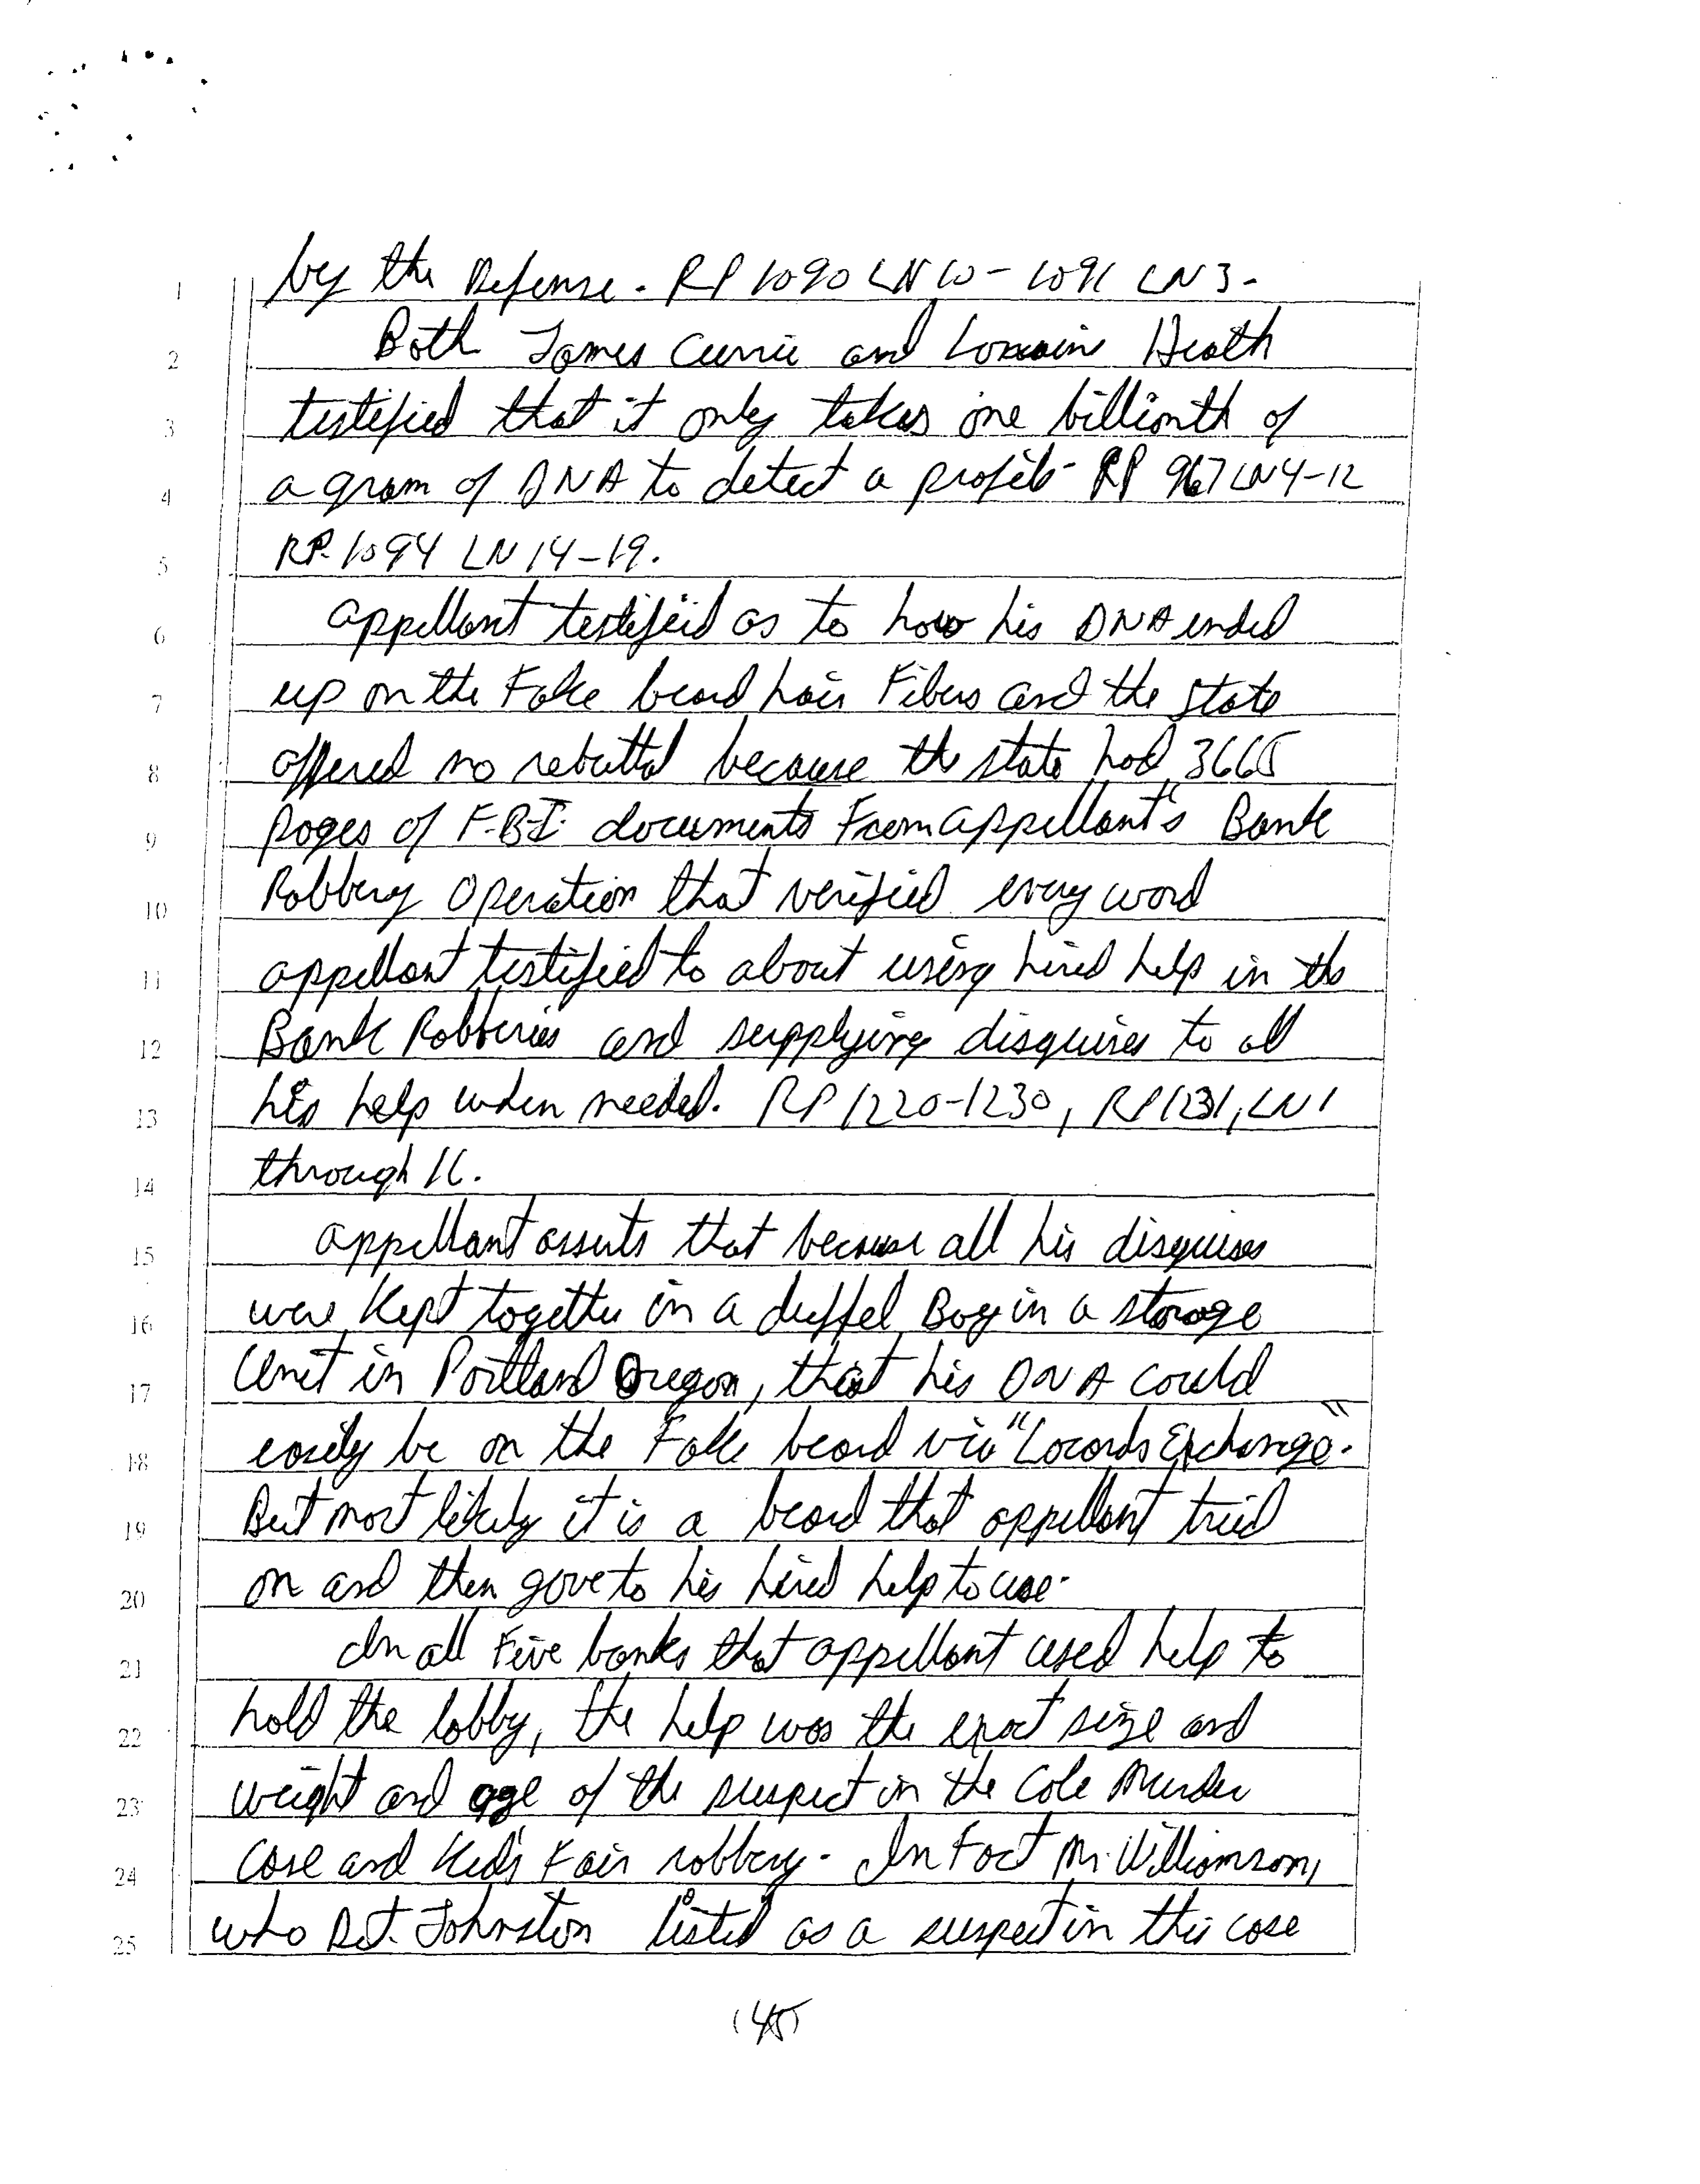 1 by the Defense. RP 1090 LN 10 - 1091 LN 3.
2 Both James Currie and Lorraine Heath
3 testified that it only takes one billionth of
4 a gram of DNA to detect a profile RP 967 LN 4-12
5 RP. 1094 LN 14-19.
6 appellant testified as to how his DNA ended
7 up on the Fake beard hair Fibers and the state
8 offered no rebuttal because the state had 3665
9 pages of F.B.I. documents From appellant's Bank
10 Robbery Operation that verified every word
11 appellant testified to about using hired help in the
12 Bank Robberies and supplying disguises to all
13 his help when needed. RP 1220-1230, RP 1231, LN 1
14 through 16.
15 appellant asserts that because all his disguises
16 were Kept together in a duffel Bag in a storage
17 Unit in Portland Oregon, that his DNA could
18 easily be on the Fake beard via "Locards Exchange".
19 But most likely it is a beard that appellant tried
20 on and then gave to his hired help to use.
21 In all Five banks that appellant used help to
22 hold the lobby, the help was the exact size and
23 weight and age of the suspect in the Cole Murder
24 Case and Kid's Fair robbery. In Fact Mr. Williamson,
25 who Det. Johnston listed as a suspect in this case
(45)